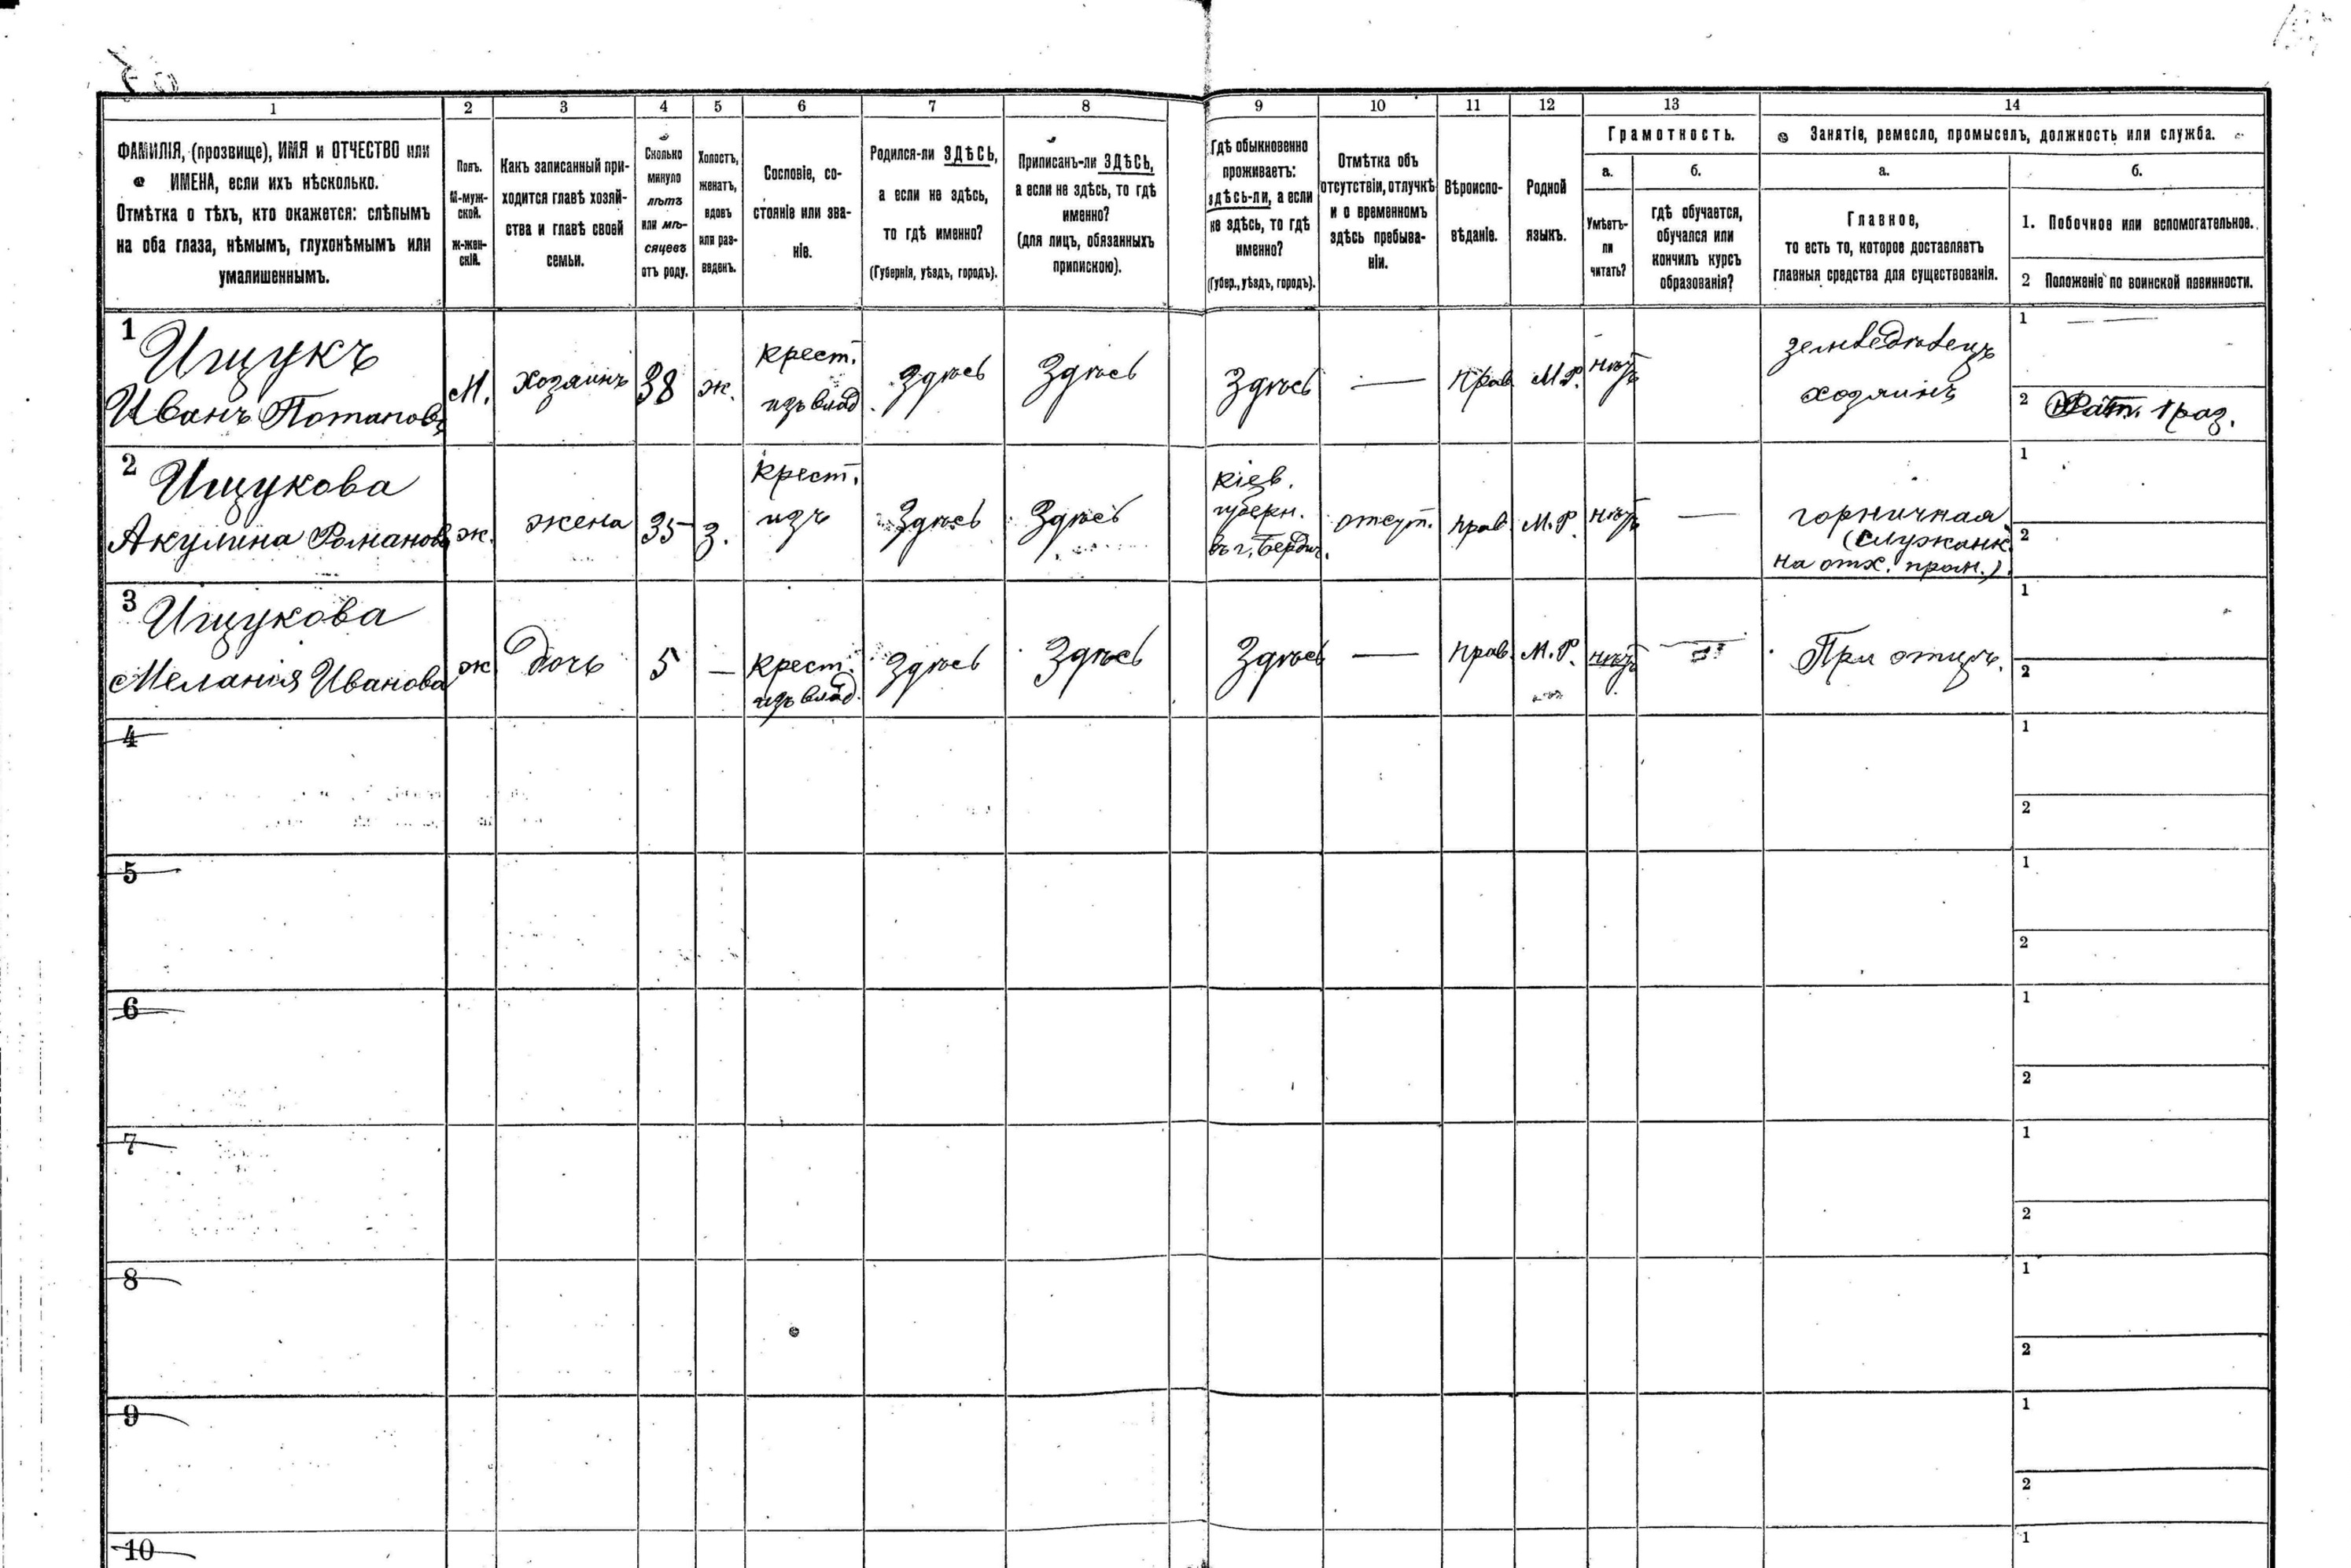 1
2
3
4
5
6
7
8
9
10
11
12
13
14
ФАМИЛІЯ, (прозвище), ИМЯ и ОТЧЕСТВО или
ИМЕНА, если ихъ нѣсколько.
Отмѣтка о тѣхъ, кто окажется: слѣпымъ
на оба глаза, нѣмымъ, глухонѣмымъ или
умалишеннымъ.
Полъ.
М-муж-
ской.
Ж-жен-
скій.
Какъ записанный при-
ходится главѣ хозяй-
ства и главѣ своей
семьи.
Сколько
минуло
лѣтъ
или мѣ-
сяцевъ
отъ роду.
Холостъ,
женатъ,
вдовъ
или раз-
веденъ.
Сословіе, со-
стояніе или зва-
ніе.
Родился-ли ЗДѢСЬ,
а если не здѣсь,
то гдѣ именно?
(Губернія, уѣздъ, городъ).
Приписанъ-ли ЗДѢСЬ,
а если не здѣсь, то гдѣ
именно?
(для лицъ, обязанныхъ
припискою).
Гдѣ обыкновенно
проживаетъ:
здѣсь-ли, а если
не здѣсь, то гдѣ
именно?
(Губер., уѣздъ, городъ).
Отмѣтка объ
отсутствіи, отлучкѣ
и о временномъ
здѣсь пребыва-
ніи.
Вѣроиспо-
вѣданіе.
Родной
языкъ.
Грамотность.
а.
Умѣетъ-
ли
читать?
б.
гдѣ обучается,
обучался или
кончилъ курсъ
образованія?
Занятіе, ремесло, промыселъ, должность или служба.
а.
Главное,
то есть то, которое доставляетъ
главныя средства для существованія.
б.
1. Побочное или вспомогательное.
2 Положеніе по воинской повинности.
1
Ищукъ
Иванъ Потаповъ
М.
хозяинъ
38
ж.
крест.
изъ влад
Здѣсь
Здѣсь
Здѣсь
—
прав
М.Р.
нѣтъ
земледѣлецъ
хозяинъ
1
2 Рат. 1 раз.
2
Ищукова
Акулина Романова
ж.
жена
35
з.
крест.
изъ
Здѣсь
Здѣсь
Кіев.
губерн.
въ г. Бердич.
отсут.
прав
М.Р.
нѣтъ
—
горничная
(служанк.
на отх. пром.).
1
2
3
Ищукова
Меланія Иванова
ж
дочь
5
—
крест.
изъ влад.
Здѣсь
Здѣсь
Здѣсь
—
прав.
М.Р.
нѣтъ
При отцѣ.
1
2
4
1
2
5
1
2
6
1
2
7
1
2
8
1
2
9
1
2
10
1